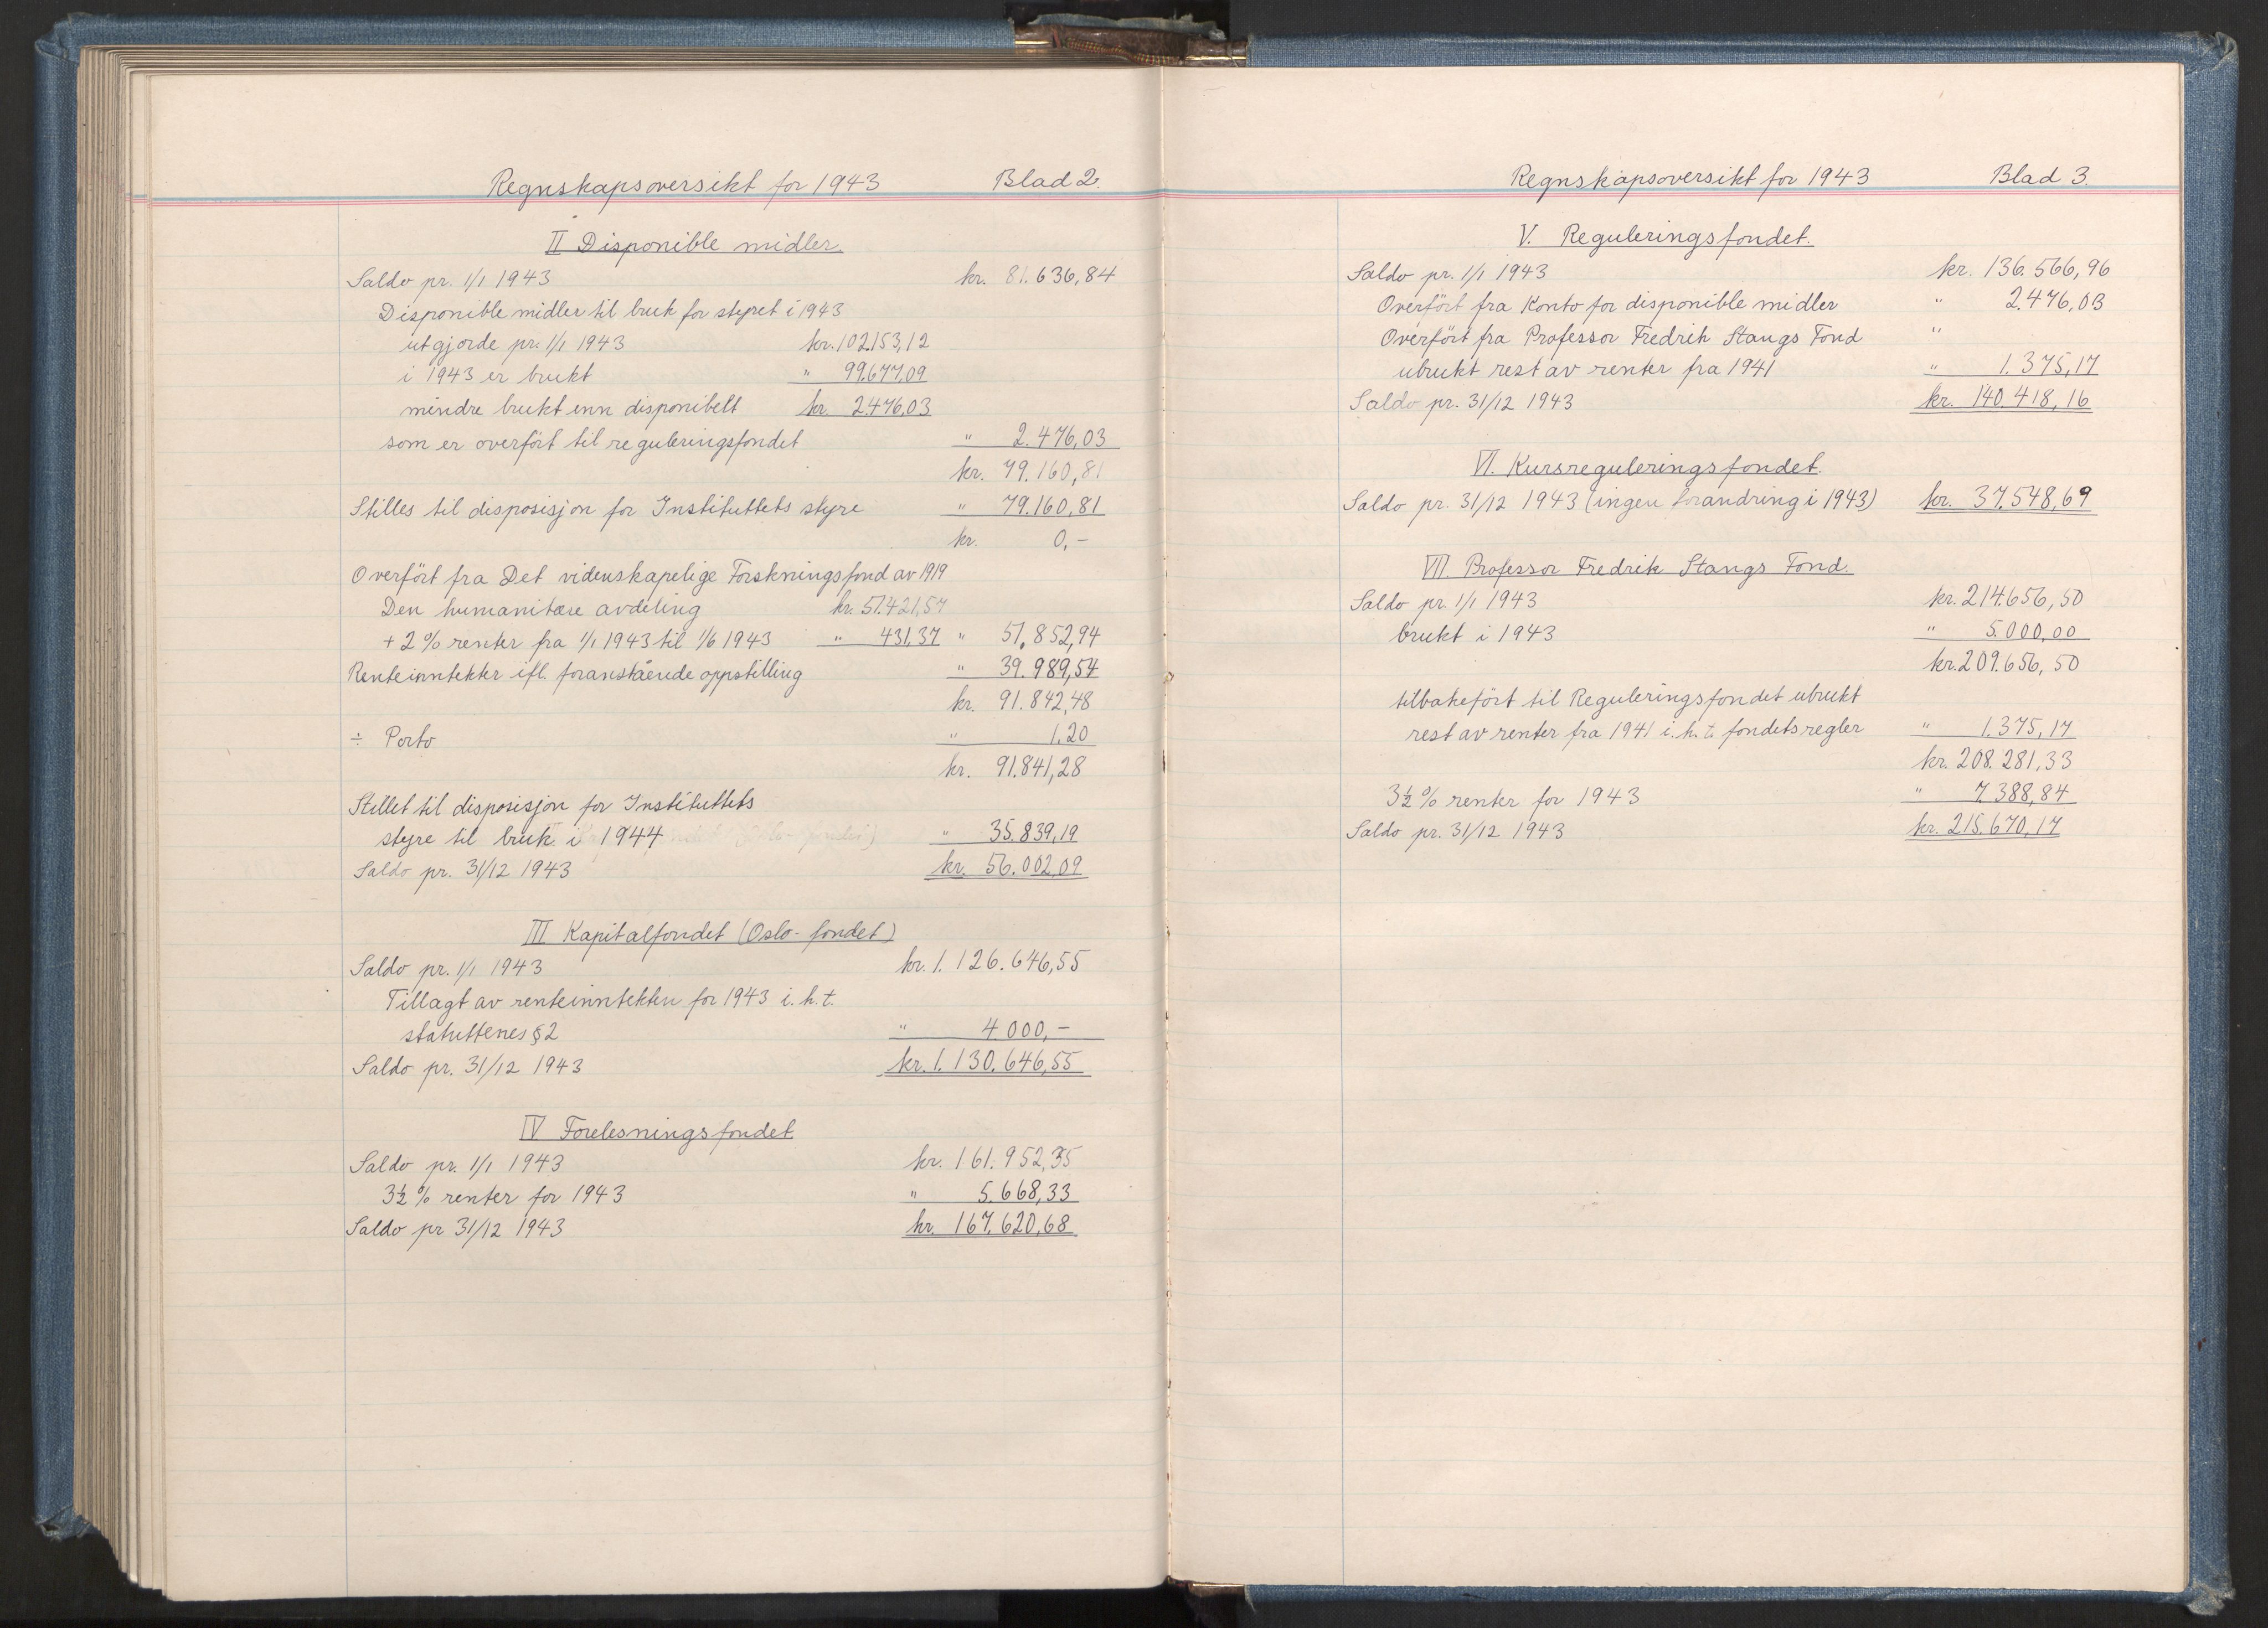 Regnskapsoversikt for 1943 Blad 2.
II Disponible midler.
Saldo pr. 1/1 1943 kr. 81.636,84
Disponible midler til bruk for styret i 1943
utgjorde pr. 1/1 1943 kr. 102153,12
i 1943 er brukt " 99.677,09
mindre brukt enn disponibelt kr. 2476,03
som er overfört til reguleringsfondet " 2.476,03
kr. 79.160,81
Stilles til disposisjon for Instituttets styre " 79.160,81
kr. 0,-
Overfört fra Det videnskapelige Forskningsfond av 1919
Den humanitære avdeling kr. 51.421,57
+ 2 % renter fra 1/1 1943 til 1/6 1943 " 431,37 " 51.852,94
Renteinntekter ifl. foranstående oppstilling " 39.989,54
kr. 91.842,48
÷ Porto " 1.20
kr. 91.841,28
Stillet til disposisjon for Instituttets
styre til bruk i 1944 " 35.839,19
Saldo pr. 31/12 1943 kr. 56.002,09
III Kapitalfondet (Oslo-fondet)
Saldo pr. 1/1 1943 kr. 1.126.646,55
Tillagt av renteinntekten for 1943 i.h.t.
statuttenes § 2 " 4.000,-
Saldo pr. 31/12 1943 kr. 1.130.646,55
IV Forelesningsfondet
Saldo pr. 1/1 1943 kr. 161.952,35
3½ % renter for 1943 " 5.668,33
Saldo pr 31/12 1943 kr. 167.620,68
Regnskapsoversikt for 1943 Blad 3.
V. Reguleringsfondet.
Saldo pr. 1/1 1943 kr. 136.566,96
Overfört fra Konto for disponible midler " 2.476,03
Overfört fra Professor Fredrik Stangs Fond "
ubrukt rest av renter fra 1941 " 1.375,17
Saldo pr. 31/12 1943 kr. 140.418,16
VI. Kursreguleringsfondet.
Saldo pr. 31/12 1943 (ingen forandring i 1943) kr. 37.548,69
VII. Professor Fredrik Stangs Fond.
Saldo pr. 1/1 1943 kr. 214.656,50
brukt i 1943 " 5.000,00
kr. 209.656,50
tilbakefört til Reguleringsfondet ubrukt
rest av renter fra 1941 i.h.t. fondets regler " 1.375,17
kr. 208.281,33
3½ % renter for 1943 " 7.388,84
Saldo pr. 31/12 1943 kr. 215.670,17